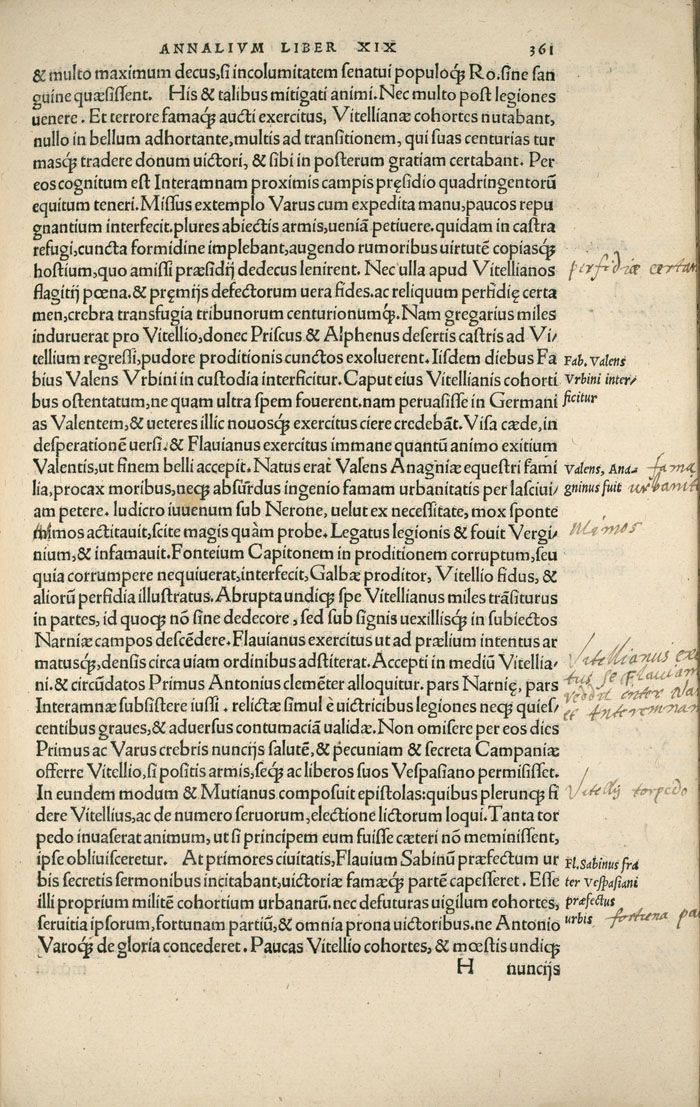 ANNALIVM LIBER XIX 361
& multo maximum decus,si incolumitatem senatui populoq́ꝫ Ro.sine san
guine quæsissent. His & talibus mitigati animi. Nec multo post legiones
uenere. Et terrore famaq́ꝫ aucti exercitus, Vitellianæ cohortes nutabant,
nullo in bellum adhortante,multis ad transitionem, qui suas centurias tur
masq́ꝫ tradere donum uictori, & sibi in posterum gratiam certabant. Per
eos cognitum est Interamnam proximis campis pręsidio quadringentorũ
equitum teneri. Missus extemplo Varus cum expedita manu,paucos repu
gnantium interfecit.plures abiectis armis,ueniã petiuere.quidam in castra
refugi,cuncta formidine implebant,augendo rumoribus uirtutẽ copiasq́ꝫ
hostium,quo amissi præsidij dedecus lenirent. Nec ulla apud Vitellianos
perfidiæ certam
flagitij pœna.& pręmijs defectorum uera fides.ac reliquum perfidię certa
men,crebra transfugia tribunorum centurionumq́ꝫ. Nam gregarius miles
induruerat pro Vitellio,donec Priscus & Alphenus desertis castris ad Vi/
tellium regressi,pudore proditionis cunctos exoluerent. Iisdem diebus Fa
Fab. Valens
bius Valens Vrbini in custodia interficitur. Caput eius Vitellianis cohorti
Vrbini inter/
bus ostentatum,ne quam ultra spem fouerent.nam peruasisse in Germani
ficitur
as Valentem,& ueteres illic nouosq́ꝫ exercitus ciere credebãt. Visa cæde,in
desperationẽ uersi.& Flauianus exercitus immane quantũ animo exitium
Valentis,ut finem belli accepit. Natus erat Valens Anagniæ equestri fami
Valens, Ana- fama
lia,procax moribus,neq́ꝫ absurdus ingenio famam urbanitatis per lasciui/
gninus fuit urbanit
am petere. ludicro iuuenum sub Nerone, uelut ex necessitate, mox sponte
mimos actitauit,scite magis quàm probe. Legatus legionis & fouit Vergi/
Mimos
nium,& infamauit. Fonteium Capitonem in proditionem corruptum,seu
quia corrumpere nequiuerat,interfecit, Galbæ proditor, Vitellio fidus, &
aliorũ perfidia illustratus. Abrupta undiq́ꝫ spe Vitellianus miles trãsiturus
in partes, id quoq́ꝫ nõ sine dedecore, sed sub signis uexillisq́ꝫ in subiectos
Narniæ campos descẽdere. Flauianus exercitus ut ad prælium intentus ar
matusq́ꝫ,densis circa uiam ordinibus adstiterat. Accepti in mediũ Vitellia/
Vitellianus exe
ni.& circũdatos Primus Antonius clemẽter alloquitur. pars Narnię, pars
tus se Flauian
Interamnæ subsistere iussi. relictæ simul è uictricibus legiones neq́ꝫ quies/
centibus graues,& aduersus contumaciã ualidæ. Non omisere per eos dies
et Interamnan
Primus ac Varus crebris nuncijs salutẽ, & pecuniam & secreta Campaniæ
offerre Vitellio,si positis armis,seq́ꝫ ac liberos suos Vespasiano permisisset.
In eundem modum & Mutianus composuit epistolas:quibus plerunq́ꝫ fi
Vitellij torpedo
dere Vitellius,ac de numero seruorum,electione lictorum loqui. Tanta tor
pedo inuaserat animum, ut si principem eum fuisse cæteri nõ meminissent,
ipse obliuisceretur. At primores ciuitatis,Flauium Sabinũ præfectum ur
Fl. Sabinus fra
bis secretis sermonibus incitabant,uictoriæ famæq́ꝫ partẽ capesseret. Esse
ter Vespasiani
illi proprium militẽ cohortium urbanarũ.nec defuturas uigilum cohortes,
præfectus
seruitia ipsorum,fortunam partiũ,& omnia prona uictoribus.ne Antonio
urbis fortuna pa
Varoq́ꝫ de gloria concederet. Paucas Vitellio cohortes, & mœstis undiq́ꝫ
H nuncijs